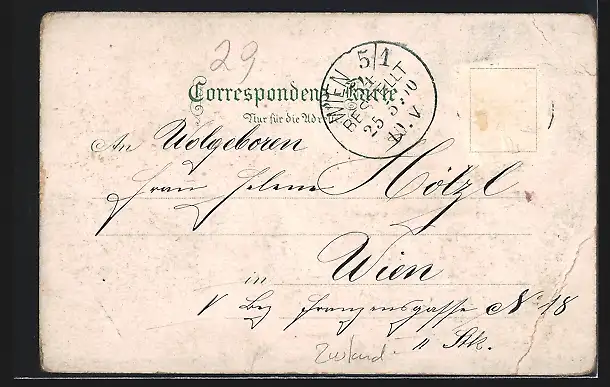 29
Correspondenz-Karte
Nur für die Adr
WIEN 5/1
BESTELLT
25. 5. 00
10. V.
An Wolgeboren
Frau Helene Hölzl
in Wien
V Bez Franzensgasse No 18
II Stk.